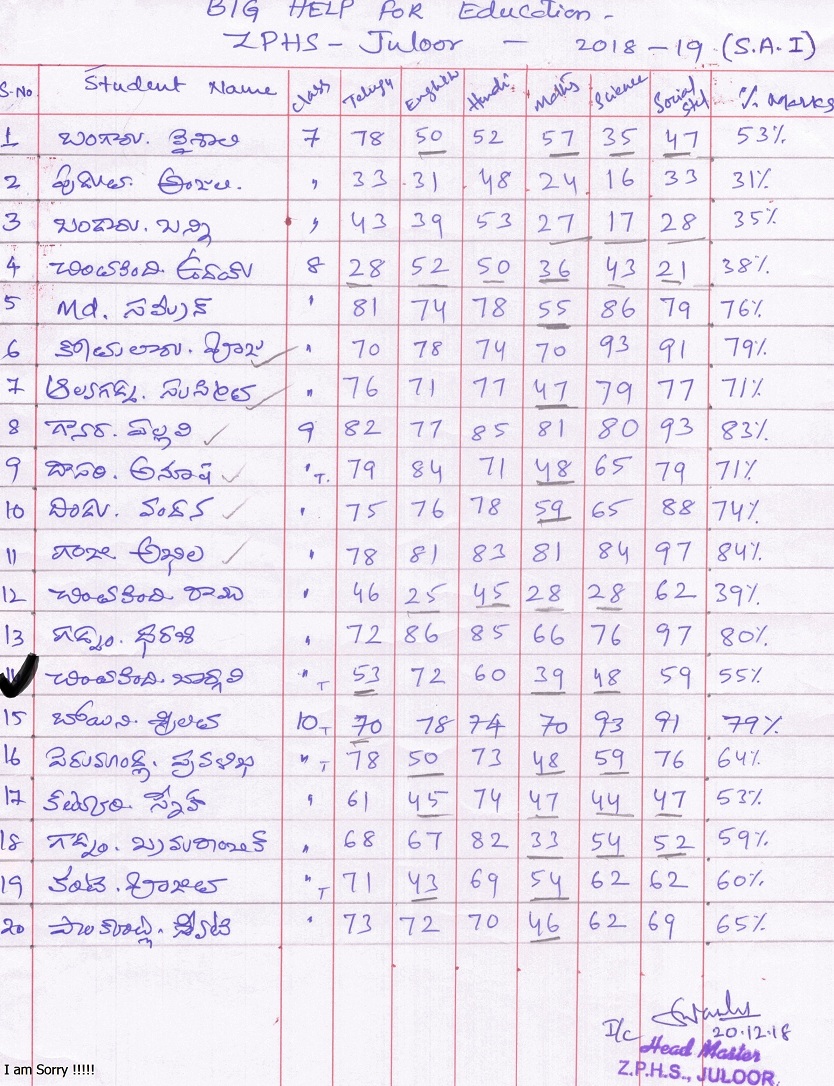 BIG HELP FOR Education -
ZPHS - Juloor - 2018-19 (S.A.I)
S.No Student Name Class Telugu English Hindi Maths Science Social Std % Marks
1 బంగారు. వైశాలి 7 78 50 52 57 35 47 53%
2 అంజలి. " 33 31 48 24 16 33 31%
3 బండారు. బన్ని " 43 39 53 27 17 28 35%
4 చింతకింది. ఉదయ్ 8 28 52 50 36 43 21 38%
5 Md. సమీర్ " 81 74 78 55 86 79 76%
6 " 70 78 74 70 93 91 79%
7 " 76 71 77 47 79 77 71%
8 పల్లవి 9 82 77 85 81 80 93 83%
9 దాసరి. అనూష " T. 79 84 71 48 65 79 71%
10 దిండు. వందన " 75 76 78 59 65 88 74%
11 గంజి అఖిల " 78 81 83 81 84 97 84%
12 చింతకింది రాము " 46 25 45 28 28 62 39%
13 గడ్డం. ధరణి " 72 86 85 66 76 97 80%
చింతకింది. భార్గవి " T 53 72 60 39 48 59 55%
15 శ్రీలత 10 T 70 78 74 70 93 91 79%
16 " T 78 50 73 48 59 76 64%
17 " 61 45 74 47 44 47 53%
18 గడ్డం. " 68 67 82 33 54 52 59%
19 " T 71 43 69 54 62 62 60%
20 " 73 72 70 46 62 69 65%
I/c 20.12.18
Head Master
Z.P.H.S., JULOOR.
I am Sorry !!!!!